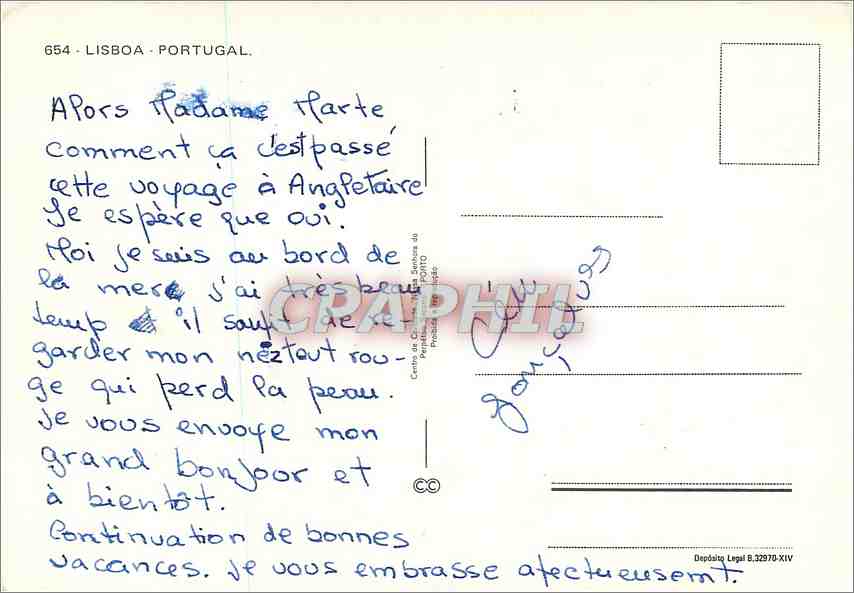 654 - LISBOA - PORTUGAL.
Alors Madame Marte
comment ça c'est passé
cette voyage à Angletaire
Je espère que oui.
Moi je suis au bord de
la mer j'ai très beau
temp il saufit de re-
garder mon nez tout rou-
ge qui perd la peau.
Je vous envoye mon
grand bonjour et
à bientôt.
Continuation de bonnes
vacances. Je vous embrasse afectueusemt.
Centro de Caridade "Nossa Senhora do
Perpétuo Socorro" PORTO
Proibida a reprodução
CPAPHIL
Gonçalves
CC
Depósito Legal B,32970-XIV